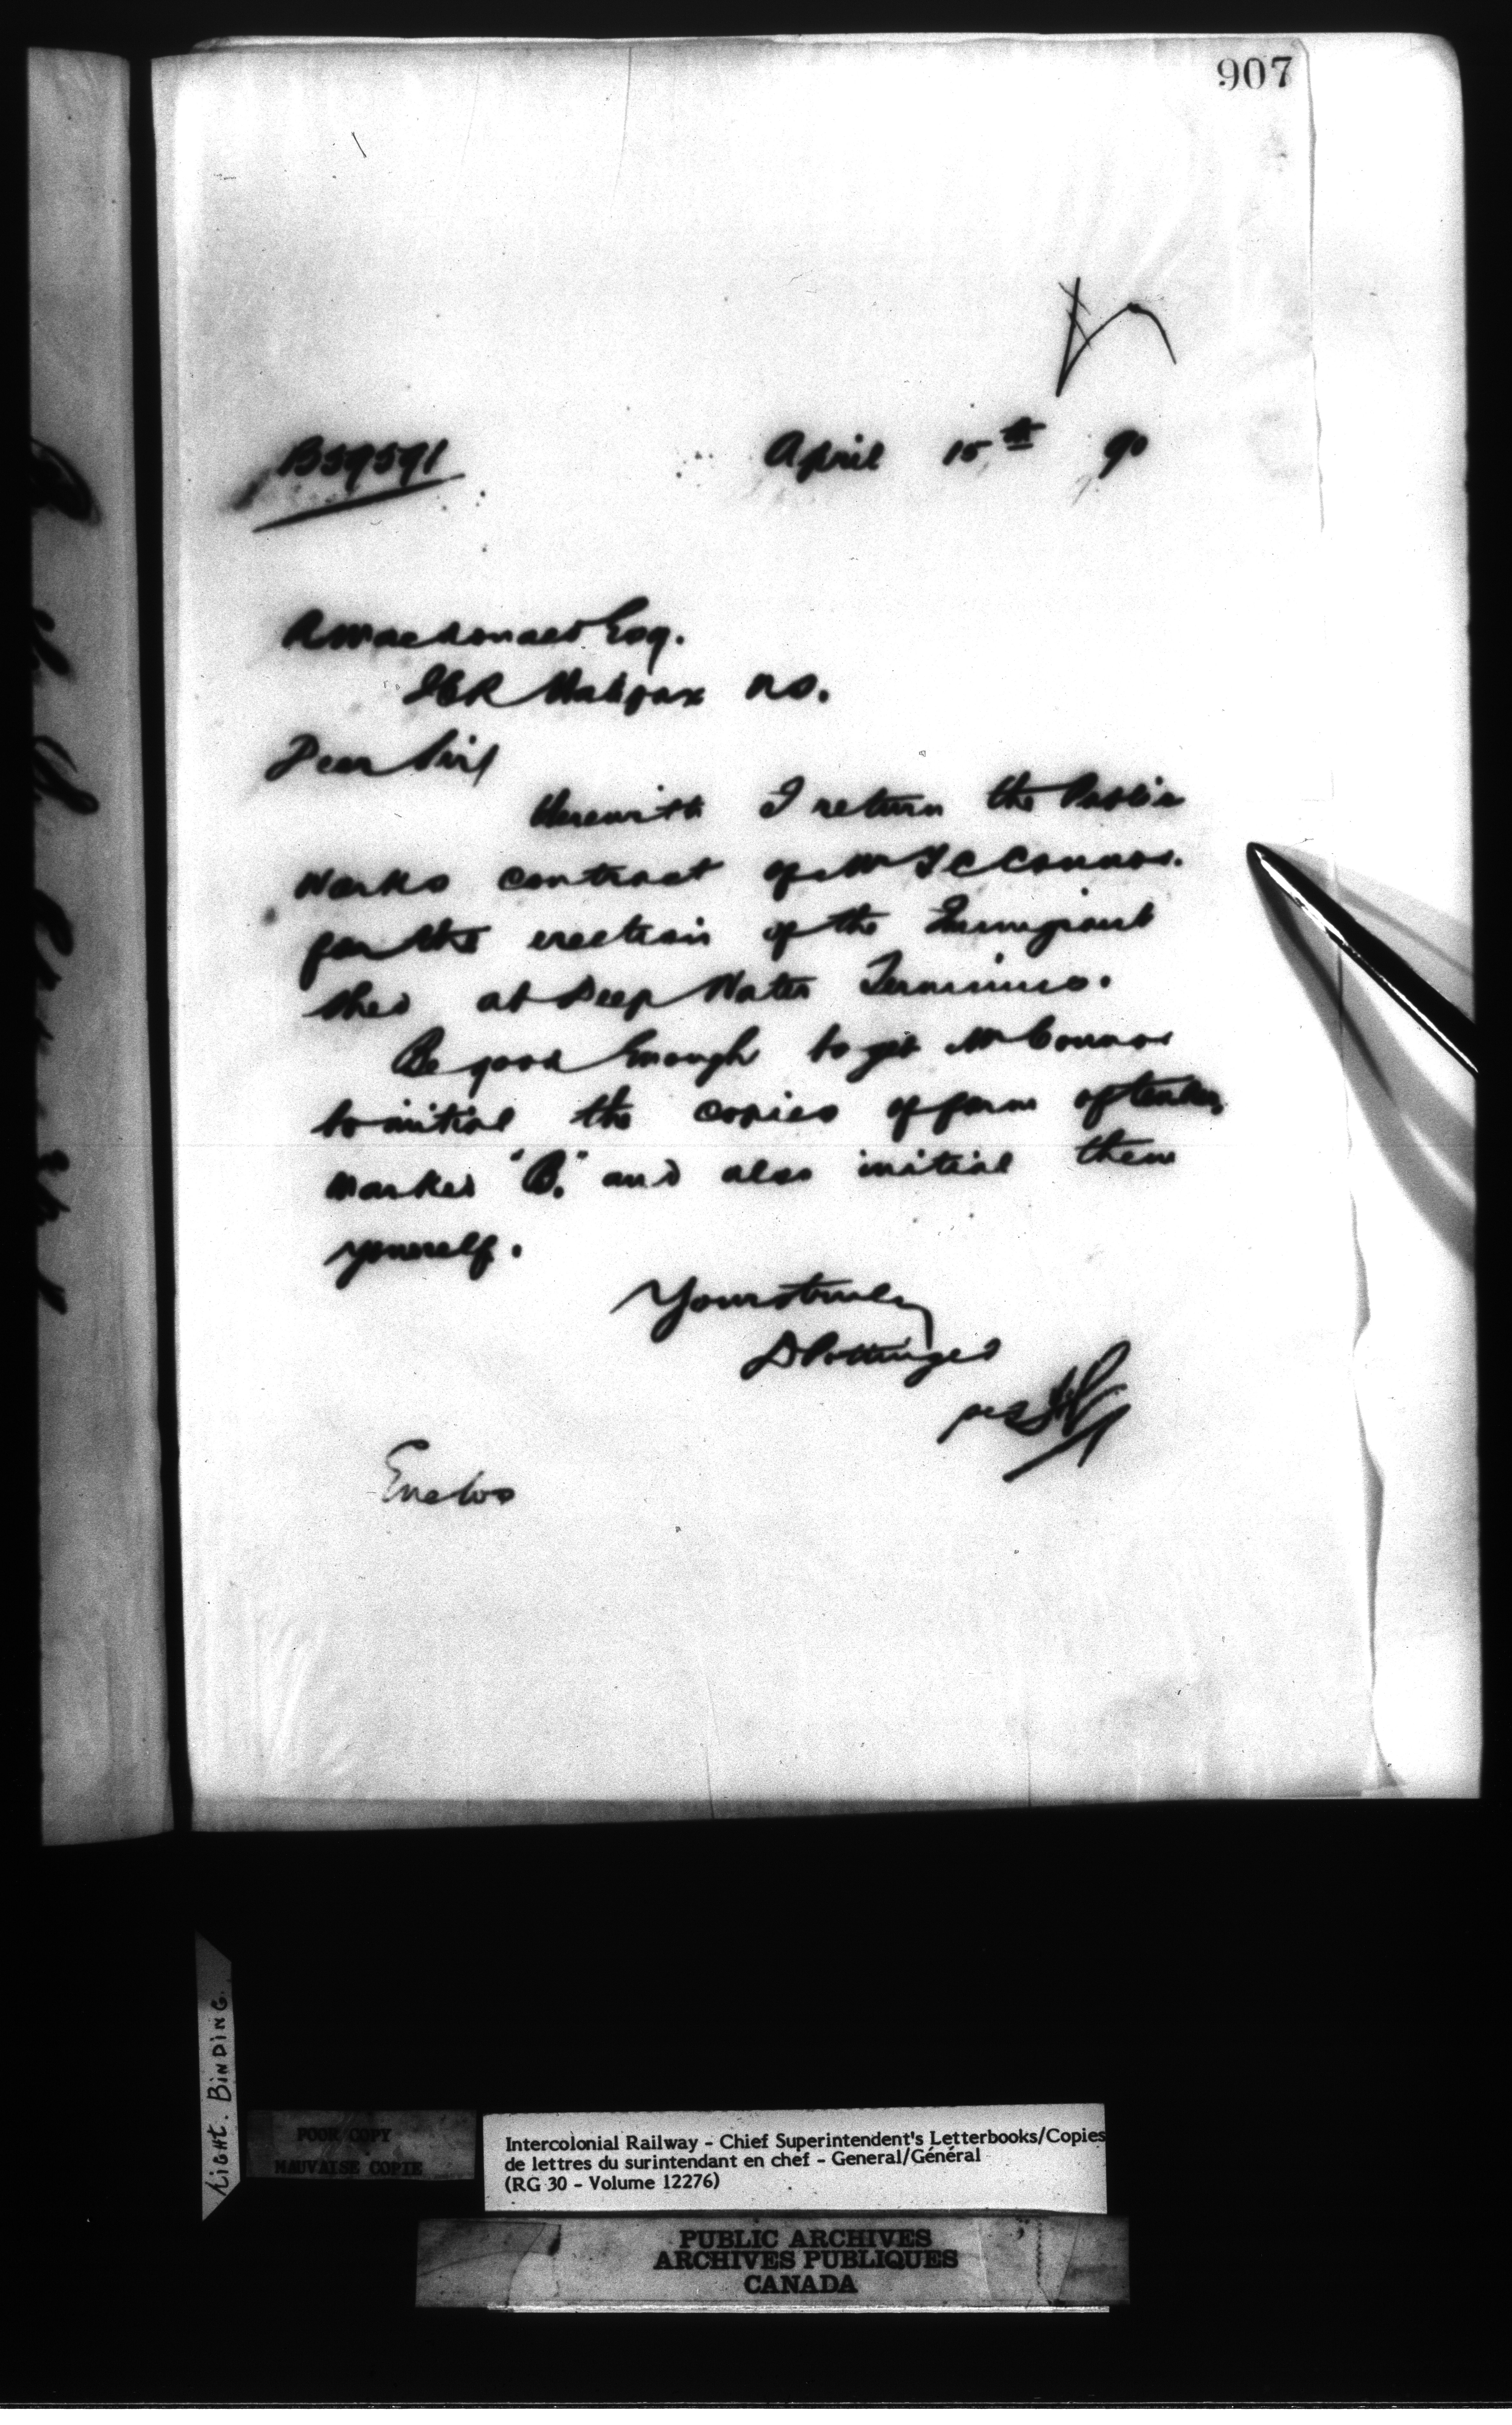 907
B59591
April 15th 90
A Macdonald Esq.
ICR Halifax NS.
Dear Sir/
Herewith I return the Public
Works contract of Mr J C Connor.
for the erection of the Immigrant
shed at Deep Water Terminus.
Be good Enough to get Mr Connor
to initial the copies of form of tender
marked "B." and also initial them
yourself.
Yours truly
D Pottinger
per
Enclos
Light. BINDING.
POOR COPY
MAUVAISE COPIE
Intercolonial Railway - Chief Superintendent's Letterbooks/Copies
de lettres du surintendant en chef - General/Général
(RG 30 - Volume 12276)
PUBLIC ARCHIVES
ARCHIVES PUBLIQUES
CANADA